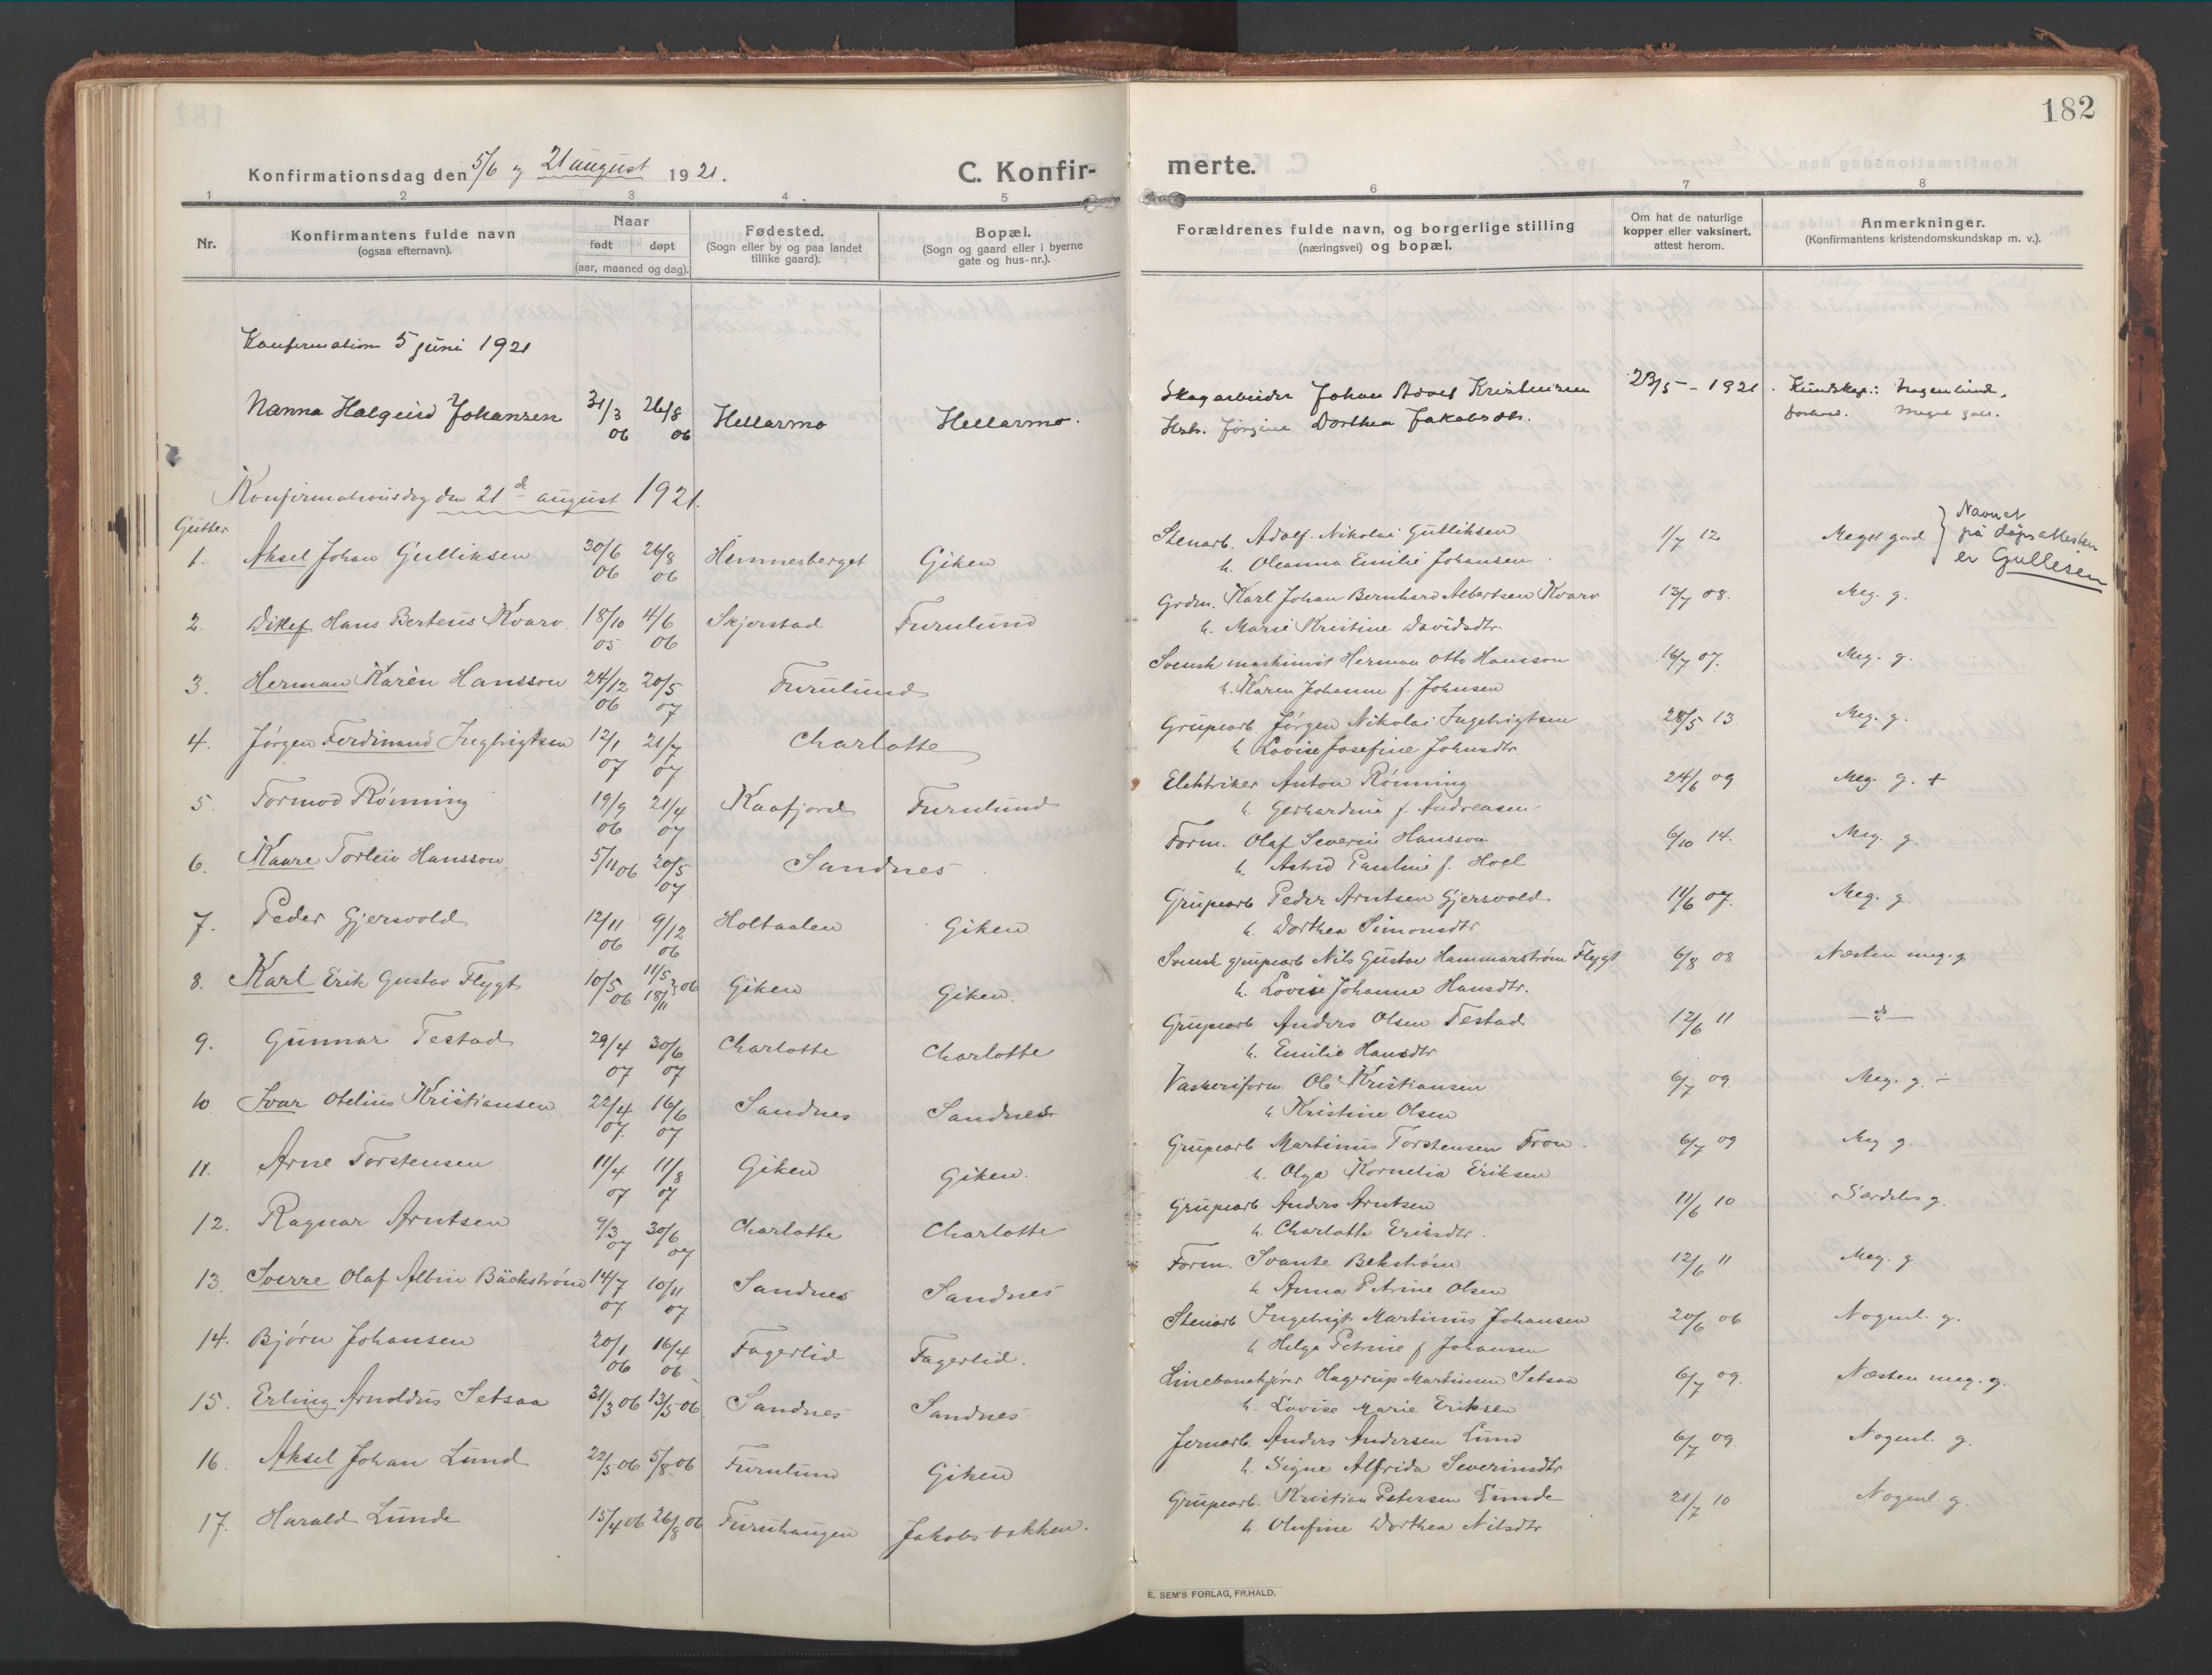 182
Konfirmationsdag den 5/6 og 21 august 1921.
C. Konfirmerte.
1 2 3 4 5 6 7 8
Nr.
Konfirmantens fulde navn
(ogsaa efternavn).
Naar
født døpt
(aar, maaned og dag).
Fødested.
(Sogn eller by og paa landet
tillike gaard).
Bopæl.
(Sogn og gaard eller i byerne
gate og hus-nr.).
Forældrenes fulde navn, og borgerlige stilling
(næringsvei) og bopæl.
Om hat de naturlige
kopper eller vaksinert,
attest herom.
Anmerkninger.
(Konfirmantens kristendomskundskap m. v.).
Konfirmation 5 juni 1921
Nanna Halgerd Johansen 31/3 06 26/8 06 Hellarmo Hellarmo. Skogarbeider Johan Adolf Kristensen 23/5 - 1921. Kundskap: Nogenlund.
Hstr. Jørgine Dorthea Jakobsdtr. forhold. Meget godt.
Konfirmationsdag den 21de august 1921.
Gutter
1. Aksel Johan Gulliksen 30/6 06 26/8 06 Hemnesberget Giken Stenarb. Adolf Nikolai Gulliksen 1/7 12 Meget god } Navnet
på dåpsattesten
er Gullesen
h. Oleanna Emilie Johansen.
2. Ditlef Hans Berteus Kvarv. 18/10 05 4/6 06 Skjerstad Furulund Grdm. Karl Johan Bernhard Albertsen Kvarv 13/7 08. Meg. g.
h. Marie Kristine Davidsdtr.
3. Herman Karèn Hansson 24/12 06 20/5 07 Furulund Svensk maskinist Herman Otto Hansson 16/7 07. Meg. g.
h. Karen Johanne f. Johnsen
4. Jørgen Ferdinand Ingebrigtsen 12/1 07 21/7 07 Charlotte Grubearb. Jørgen Nikolai Ingebrigtsen 28/5 13. Meg. g.
h. Lovise Josefine Johnsdtr.
5. Tormod Rönning 19/9 06 21/4 07 Kaafjord Furulund Elektriker Anton Rönning 24/6 09 Meg. g. +
h. Gerhardine f. Andreasen
6. Kaare Torleiv Hansson 5/11 06 20/5 07 Sandnes Form. Olaf Severin Hansson 6/10 14. Meg. g.
h. Astrid Pauline f. Hoel
7. Peder Gjersvold 12/11 06 9/12 06 Holtaalen Giken Grubearb Peder Arntsen Gjersvold 11/6 07. Meg. g.
h. Dorthea Simonsdtr
8. Karl Erik Gustav Flygt 10/5 06 11/5 18/11 } 06 Giken Giken. Svensk grubearb Nils Gustav Hammarstrøm Flygt 6/8 08 Næsten meg. g
h. Lovise Johanne Hansdtr.
9. Gunnar Festad 29/4 07 30/6 07 Charlotte Charlotte Grubearb Anders Olsen Festad 12/6 11 — do —
h. Emilie Hansdtr
10 Ivar Otelius Kristiansen 22/4 07. 16/6 07 Sandnes Sandnes Vaskeriform. Ole Kristiansen 6/7 09 Meg. g. ÷
h Kristine Olsen
11. Arne Torstensen 11/4 07 11/8 07 Giken Giken. Grubearb Martinus Torstensen Fron. 6/7 09 Meg g.
h. Olga Kornelia Eriksen
12. Ragnar Arntsen 9/3 07 30/6 07 Charlotte Charlotte Grubearb Anders Arntsen 11/6 10 Særdeles g.
h. Charlotte Eriksdtr.
13. Sverre Olaf Albin Bäckström 14/7 07 10/11 07 Sandnes Sandnes Form. Svante Bekström 12/6 11 Meg. g
h Anna Petrine Olsen
14. Bjørn Johansen 20/1 06 16/4 06 Fagerlid Fagerlid. Stenarb Ingebrigt Martinus Johansen 20/6 06 Nogenl. g.
h Helga Petrine f Johansen
15. Erling Arnoldus Setsaa 31/3 06 13/5 06 Sandnes Sandnes Linebanekjører Hagerup Martinsen Setsaa 6/7 09. Næsten meg. g.
h. Lovise Marie Eriksen
16. Aksel Johan Lund 22/5 06 5/8 06 Furulund Giken Jernarb. Anders Andersen Lund 6/7 09 Nogenl. g.
h. Signe Alfrida Severinsdtr
17. Harald Lunde 15/4 06 26/8 06 Furuhaugen Jakobsbakken. Grubearb. Kristian Petersen Lunde 21/7 10 Nogenl. g.
h. Olufine Dorthea Nilsdtr
E. SEM'S FORLAG, FR.HALD.